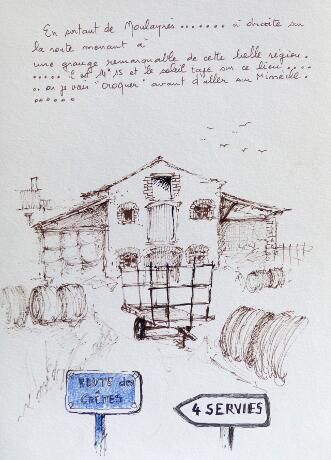 En sortant de Moulayrès....... à droite sur
la route menant à
une grange remarquable de cette belle région.
..... Il est 14H15 et le soleil tape sur ce lieu....
.. où je vais "croquer" avant d'aller sur Missècle.
......
ROUTE des
CRÊTES
4 SERVIES